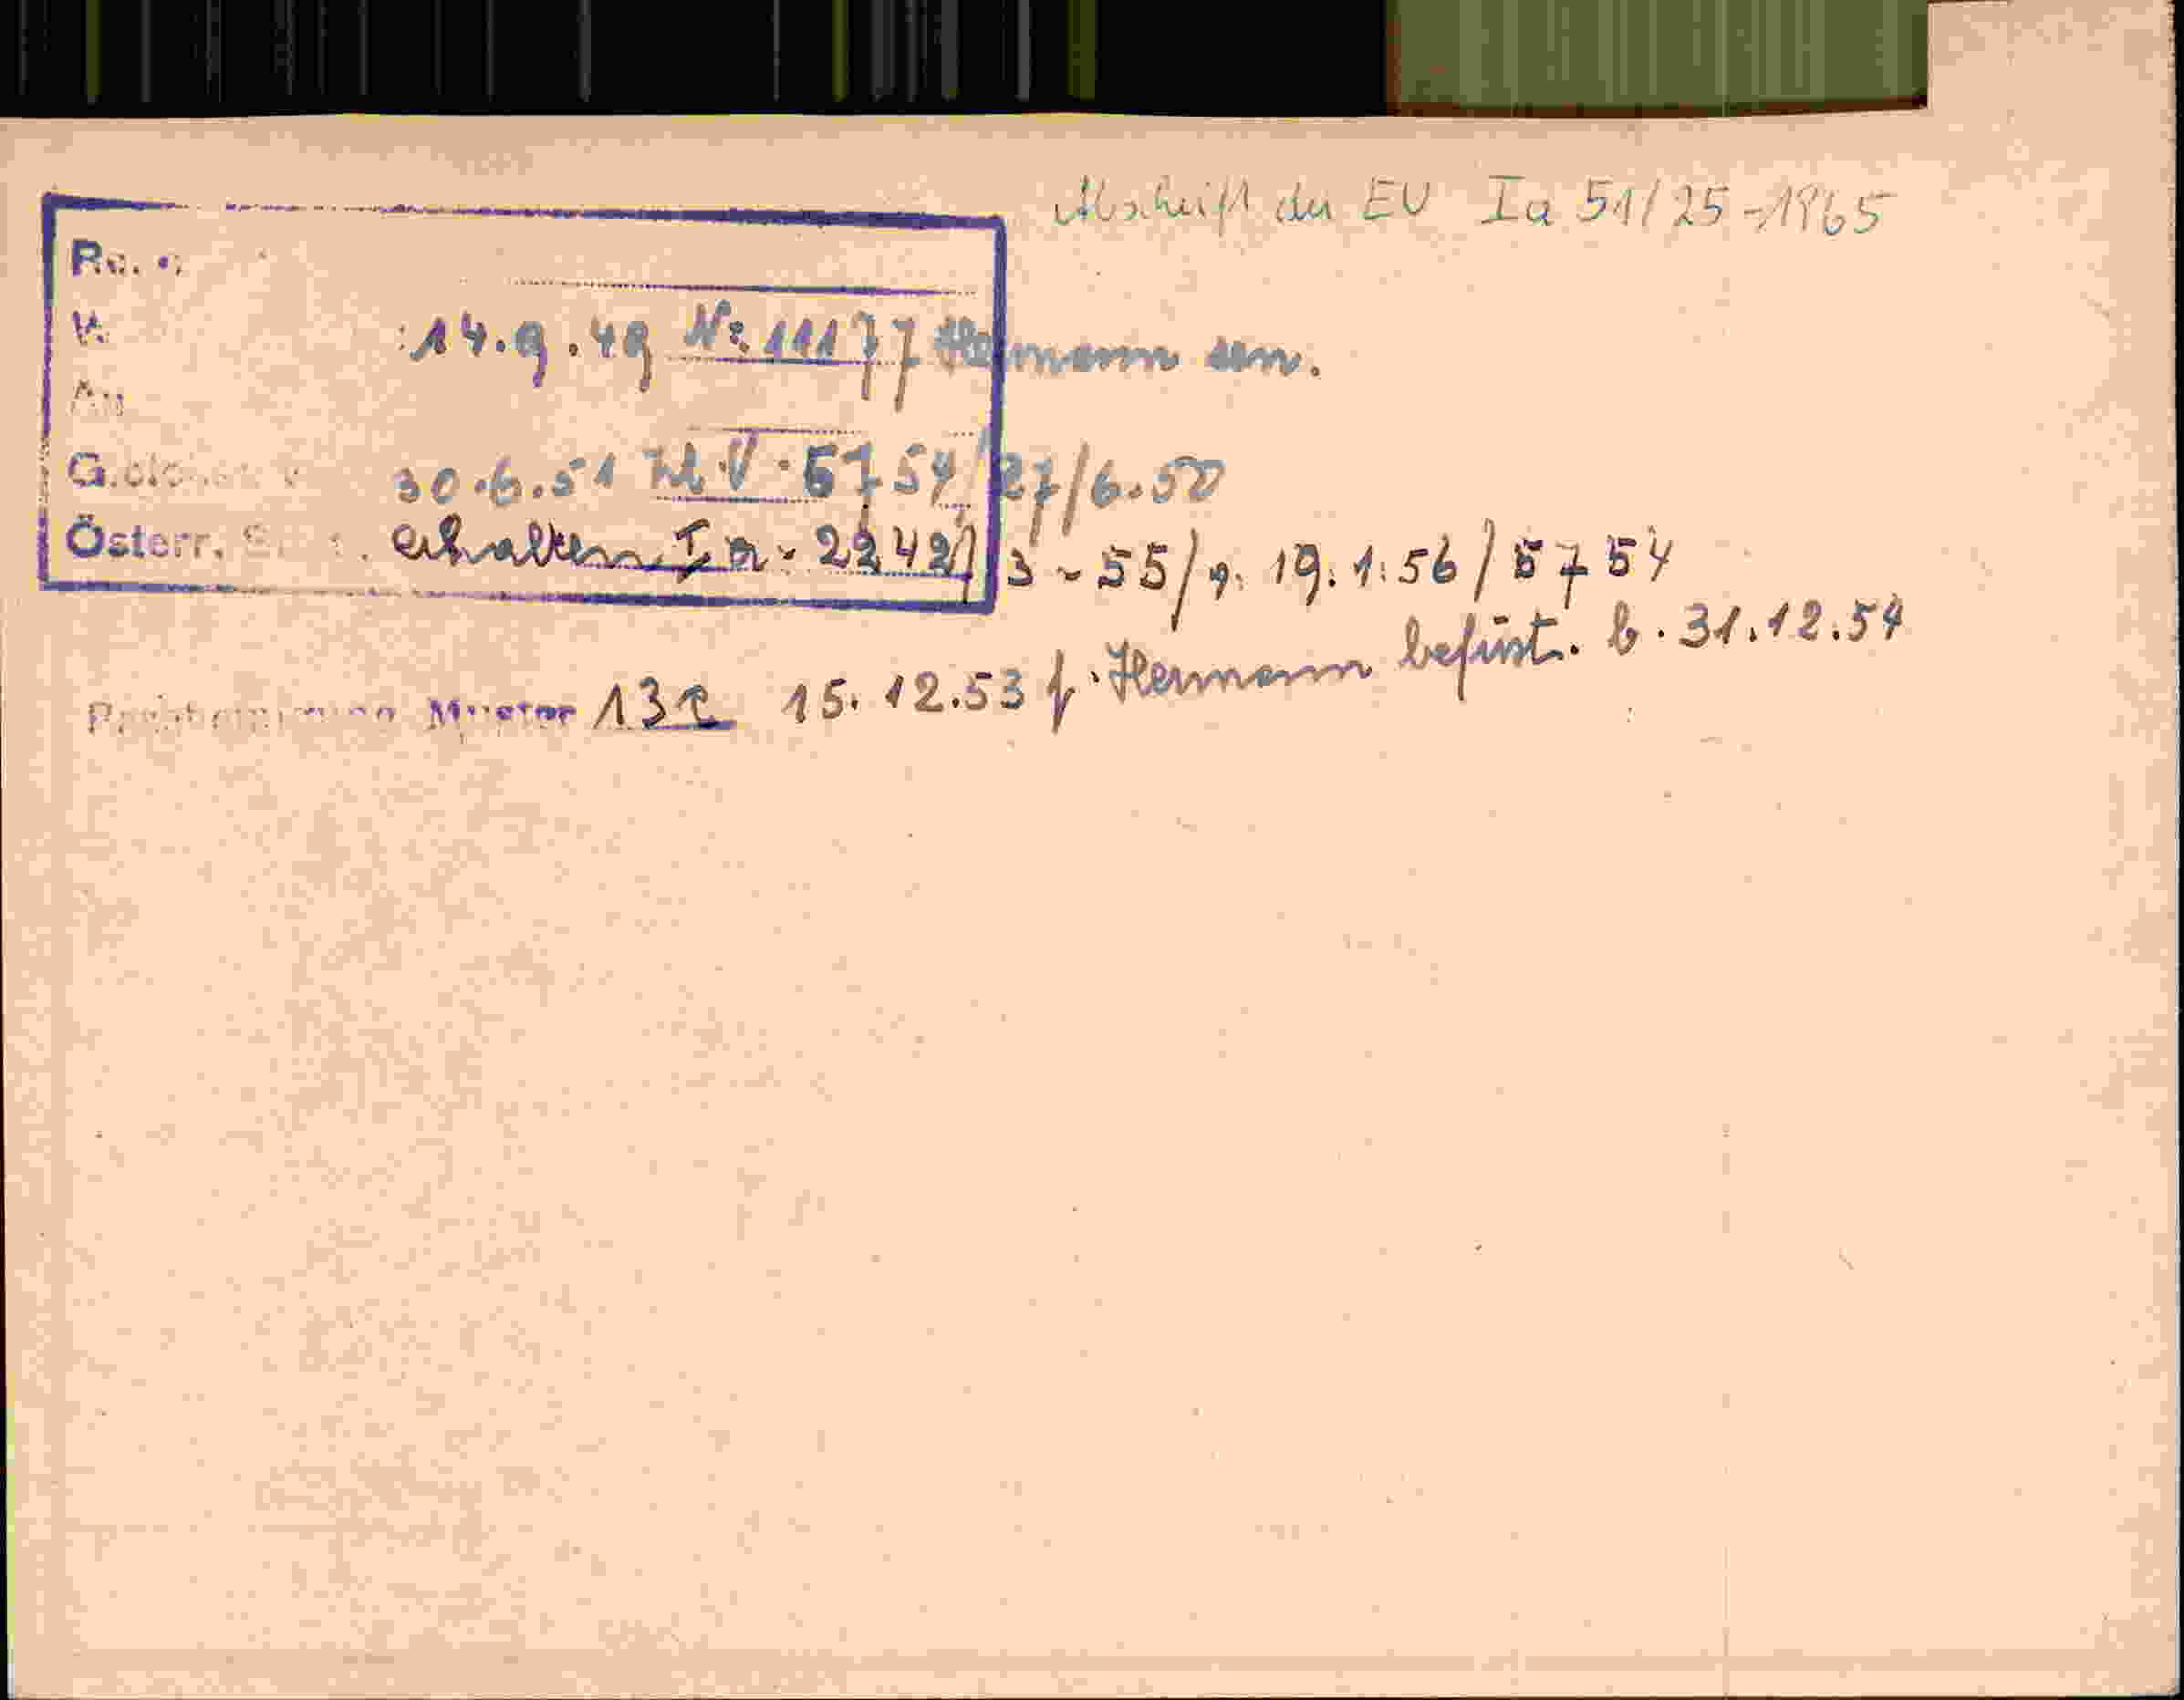 Abschrift der EU Ia 51/25-1965
14.9.49 Nr. 11177 Hermann sen.
30.6.51 Zl. V. 5754/27/6.50
Österr. erhalten Ia - 2242/3-55/v. 19.1.56/5754
Muster 13c 15.12.53 f. Hermann befrist. b. 31.12.54